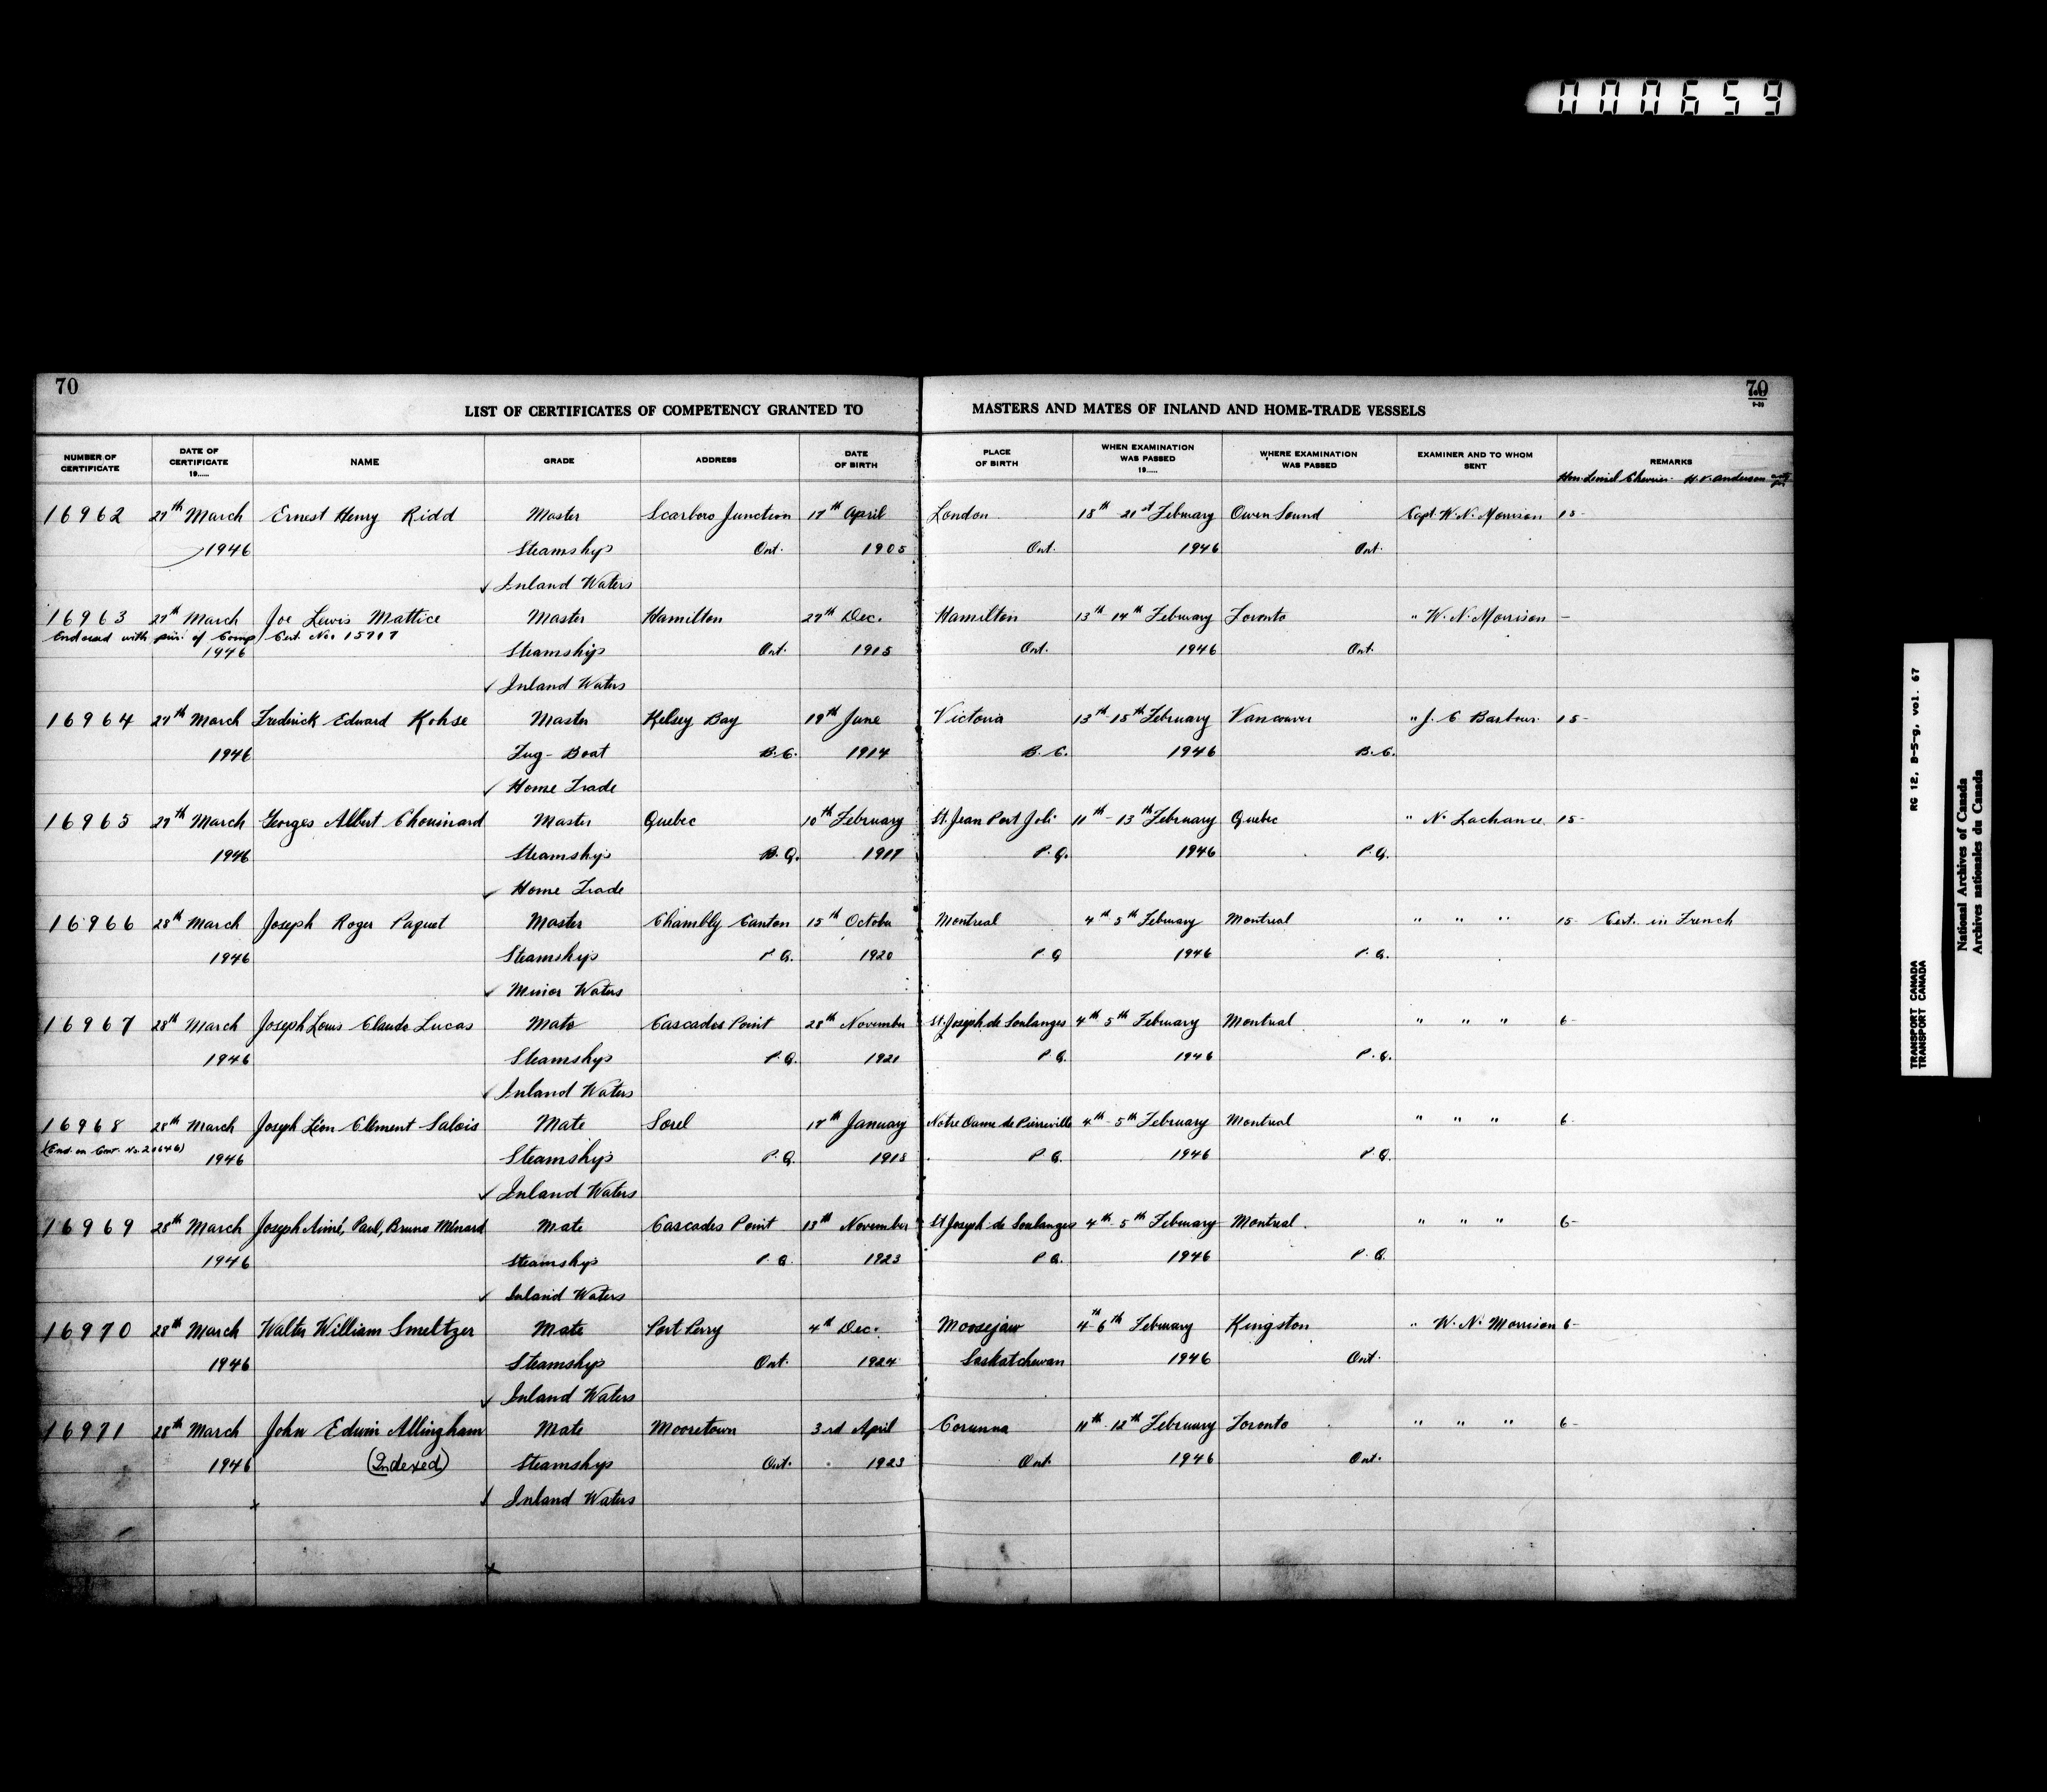 000659
70
70
LIST OF CERTIFICATES OF COMPETENCY GRANTED TO MASTERS AND MATES OF INLAND AND HOME-TRADE VESSELS
NUMBER OF CERTIFICATE DATE OF CERTIFICATE 19...... NAME GRADE ADDRESS DATE OF BIRTH PLACE OF BIRTH WHEN EXAMINATION WAS PASSED 19...... WHERE EXAMINATION WAS PASSED EXAMINER AND TO WHOM SENT REMARKS
Hon. Lionel Chevrier H.V. Anderson
16962 27th March Ernest Henry Ridd Master Scarboro Junction 17th April London 18th 21st February Owen Sound Capt. W. N. Morrison 15-
1946 Steamships Ont. 1905 Ont. 1946 Ont.
✓ Inland Waters
16963 27th March Joe Lewis Mattice Master Hamilton 27th Dec. Hamilton 13th 14th February Toronto " W. N. Morrison -
Endorsed with of Comp. Cert. No. 15707
1946 Steamships Ont. 1915 Ont. 1946 Ont.
✓ Inland Waters
16964 27th March Fredrick Edward Kohse Master Kelsey Bay 19th June Victoria 13th-15th February Vancouver " J. C Barbour 15-
1946 Tug-Boat B.C. 1914 B.C. 1946 B.C.
✓ Home Trade
16965 27th March Georges Albert Chouinard Master Quebec 10th February St. Jean Port Joli 11th-13th February Quebec " N. Lachance 15-
1946 Steamships P.Q. 1917 P.Q. 1946 P.Q.
✓ Home Trade
16966 28th March Joseph Roger Paquet Master Chambly Canton 15th October Montreal 4th 5th February Montreal " " " 15- Cert. in French
1946 Steamships P.Q. 1920 P.Q 1946 P.Q.
✓ Minor Waters
16967 28th March Joseph Louis Claude Lucas Mate Cascades Point 28th November St. Joseph de Soulanges 4th 5th February Montreal " " " 6-
1946 Steamships P.Q. 1921 P.Q. 1946 P.Q.
✓ Inland Waters
16968 28th March Joseph Léon Clement Salois Mate Sorel 17th January Notre Dame de Pierreville 4th-5th February Montreal " " " 6-
(End. on Cert. No. 20646)
1946 Steamships P.Q. 1918 P.Q. 1946 P.Q.
✓ Inland Waters
16969 28th March Joseph Aimé, Paul, Bruno Ménard Mate Cascades Point 13th November St Joseph de Soulanges 4th-5th February Montreal " " " 6-
1946 Steamships P.Q. 1923 P.Q. 1946 P.Q.
✓ Inland Waters
16970 28th March Walter William Smeltzer Mate Port Perry 4th Dec. Moosejaw 4-6th February Kingston " W. N. Morrison 6-
1946 Steamships Ont. 1924 Saskatchewan 1946 Ont.
✓ Inland Waters
16971 28th March John Edwin Allingham Mate Mooretown 3rd April Corunna 11th-12th February Toronto " " " 6-
1946 (Indexed) Steamships Ont. 1923 Ont. 1946 Ont.
✓ Inland Waters
TRANSPORT CANADA RG 12, B-5-g, vol. 67
TRANSPORT CANADA
National Archives of Canada
Archives nationales du Canada